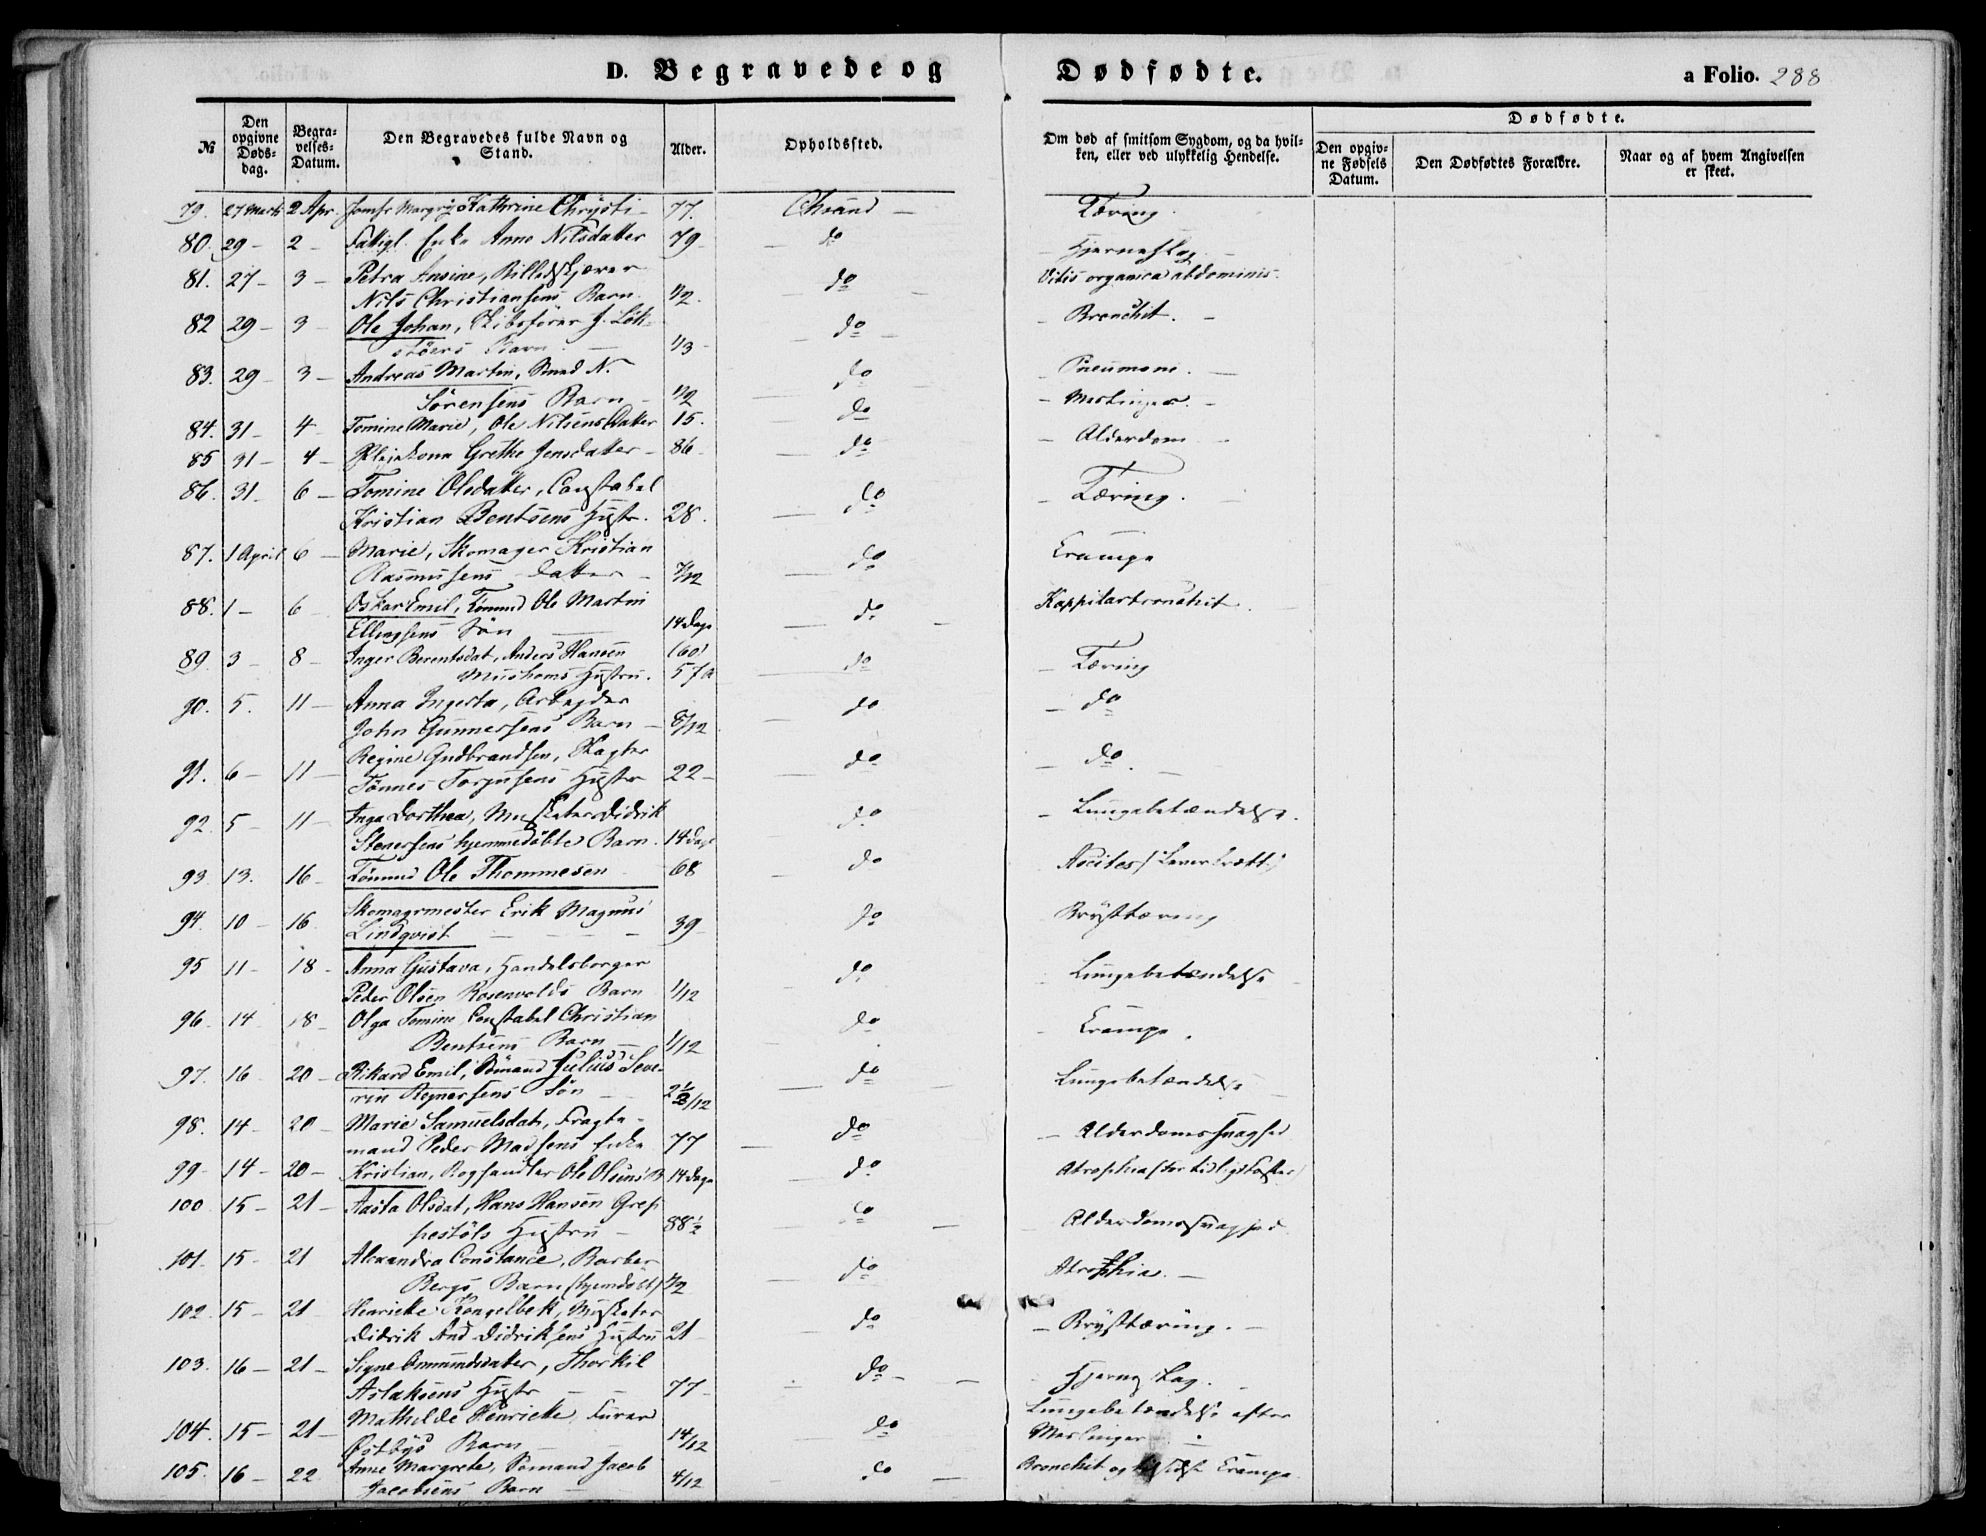 D. Begravede og Dødfødte.
a Folio. 288
№
Den opgivne Døds-dag.
Begra-velses-Datum.
Den Begravedes fulde Navn og Stand.
Alder.
Opholdssted.
Om død af smitsom Sygdom, og da hvil-ken, eller ved ulykkelig Hendelse.
Dødfødte.
Den opgiv-ne Fødsels Datum.
Den Dødfødtes Forældre.
Naar og af hvem Angivelsen er skeet.
79. 27 Marts 2 Apr. Jomfr Kathrine Chrysti- 77. Chsand - Tæring.
80. 29- 2- Fattigl. Enke Anne Nilsdatter 79- do - Hjerneslag -
81. 27- 3- Petra Ansine, Billedskjærer do Vitis organica abdominis.
Nils Christiansens Barn. 1/2.
82 29- 3- Ole Johan, Skibsfører J. Løk- do - Bronchit. -
støers Barn. 1/3-
83. 29- 3- Andreas Martin, Smed N. do - Pneumoni. -
Sørensens Barn - 1/2
84. 31- 4- Tomine Marie, Ole Nilsens Datter 15. do - Meslinger. -
85 31- 4- Grethe Jensdatter- 86- do - Alderdom -
86. 31- 6- Tomine Olsdatter, Constabel do - Tæring. -
Kristian Bentsens Hustr. 28.
87. 1 April 6- Marie, Skomager Kristian do Crampe
Rasmussens Datter - 7/12
88. 1- 6- Oskar Emil, Tømmd Ole Martin do Kappilarbronchit.
Ellingsens Søn 14 Dage
89. 3- 8- Inger Berentsdat, Anders Hansen (60) do - Tæring
Hustru. 57 A
90. 5. 11- Anna Ingerta, Arbejder do - do
John Gunnersens Barn - 8/12
91. 6- 11- Regine Gudbrandsen, do - do. -
Tønnes Torjusens Hustr 22-
92. 5- 11- Inga Dorthea, Musketer Didrik do - Lungebetændelse.
Stenersens hjemmedøbte Barn. 14 Dage
93. 13. 16- Tømmd Ole Thommesen 68 do Ascites
94. 10- 16. Skomagrmester Erik Magnus do Brysttæring
Lindqvist - 39-
95 11- 18- Anna Gustava, Handelsborger do - Lungebetændelse
Peder Olsen Rosenvolds Barn 1/12
96. 14 18- Olga Tomine, Constabel Christian do - Crampe.
Bentsens Barn - 1/12
97. 16 20- Rikard Emil, Sømand Julius Seve- do Lungebetændelse
rin Regnersens Søn 2 1/2/12
98. 14- 20- Marie Samuelsdatr, Fragte- do - Alderdomssvaghed
mand Peder Madsens Enke 77
99- 14- 20- Kristian, Boghandler Ole Olsens B 14 Dage do Atrophia
100 15- 21- Aasta Olsdat, Hans Hansen Grep- do - Alderdomssvaghed
pestøls Hustru - 88 1/2
101. 15- 21 Alexandra Constance, Barber do Atrophia. -
Bergs Barn (hjemdøbt) 1/2
102. 15- 21 Henrikke Kongelbek, Musketer do - Brysttæring. -
Didrik And Didriksens Hustru 21-
103. 16- 21- Signe Amundsdatter, Thorkil do - Hjerneslag.
Aslaksens Hustr 77-
104. 15- 21- Mathilde Henrikke, do Lungebetændelse efter
Østbys Barn 14/12 Meslinger
105. 16- 22 Anne Margrete, Sømand Jacob do Bronchit og Crampe.
Jacobsens Barn 4/12